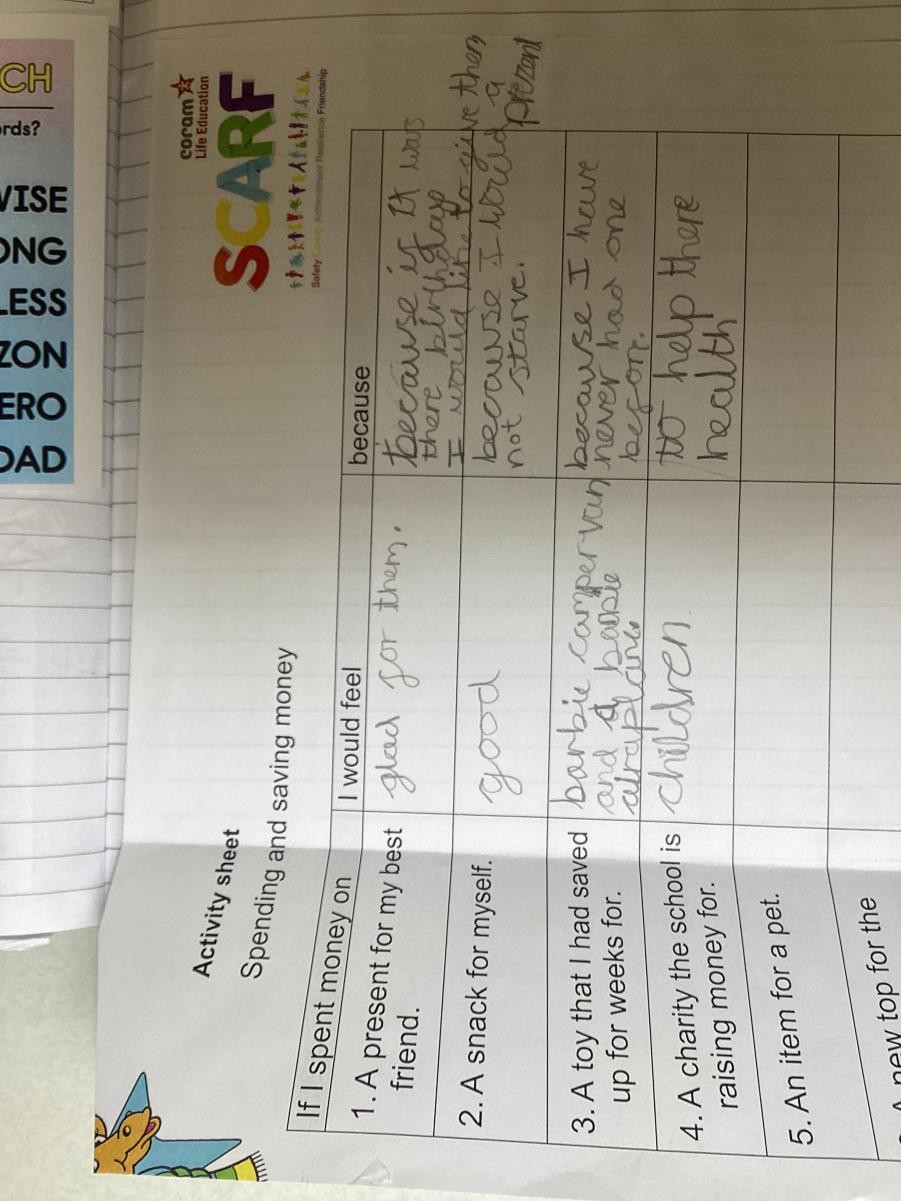 CH
ords?
VISE
ONG
LESS
ZON
ERO
OAD
coram
Life Education
SCARF
Safety Caring Achievement Resilience Friendship
Activity sheet
Spending and saving money
If I spent money on
I would feel
because
1. A present for my best
friend.
glad for them.
because if It was
there birthday
I would like to give them
a
prezant
2. A snack for myself.
good
because I would
not starve.
3. A toy that I had saved
up for weeks for.
barbie camper van
and a babie
airaplane
because I have
never had one
before.
4. A charity the school is
raising money for.
children.
to help there
health
5. An item for a pet.
A new top for the